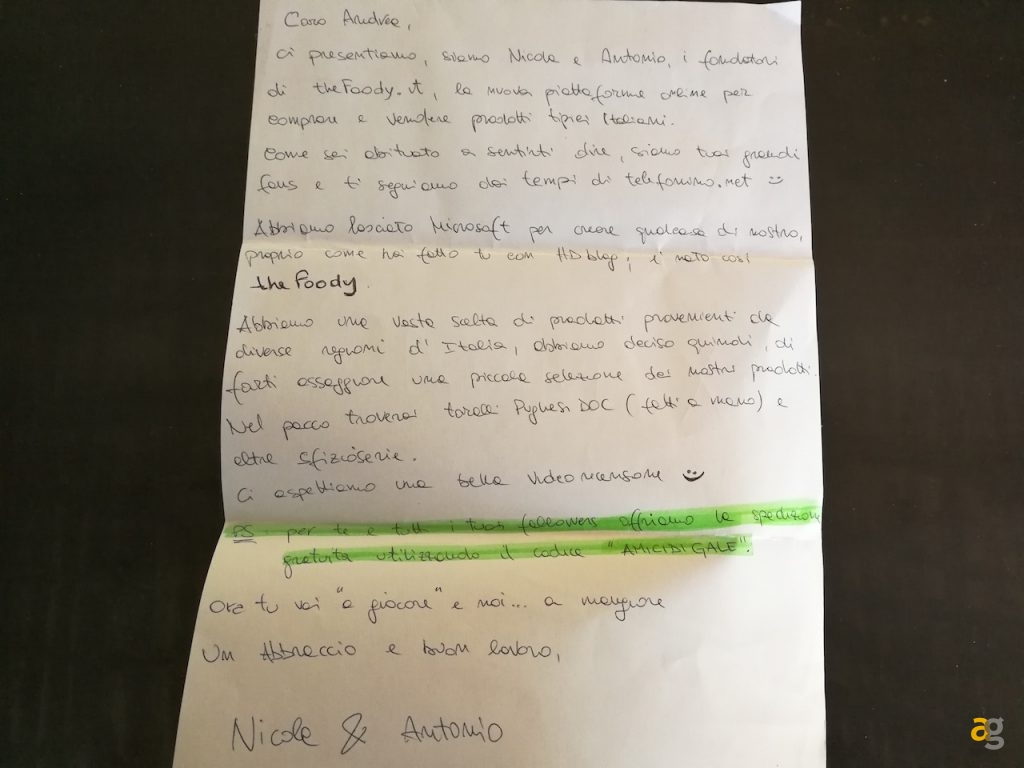 Caro Andrea,
ci presentiamo, siamo Nicola e Antonio, i fondatori
di theFoody.it, la nuova piattaforma online per
comprare e vendere prodotti tipici Italiani.
Come sei abituato a sentirti dire, siamo tuoi grandi
fans e ti seguiamo dai tempi di telefonino.net :)
Abbiamo lasciato Microsoft per creare qualcosa di nostro,
proprio come hai fatto tu con HDblog; è nato così
the Foody.
Abbiamo una vasta scelta di prodotti provenienti da
diverse regioni d'Italia, abbiamo deciso quindi, di
farti assaggiare una piccola selezione dei nostri prodotti.
Nel pacco troverai taralli Pugliesi DOC (fatti a mano) e
altre sfizioserie.
Ci aspettiamo una bella videorecensione :)
PS per te e tutti i tuoi followers offriamo la spedizione
gratuita utilizzando il codice "AMICIDIGALE".
Ora tu vai "a giocare" e noi... a mangiare
Un Abbraccio e buon lavoro,
Nicola & Antonio
ag